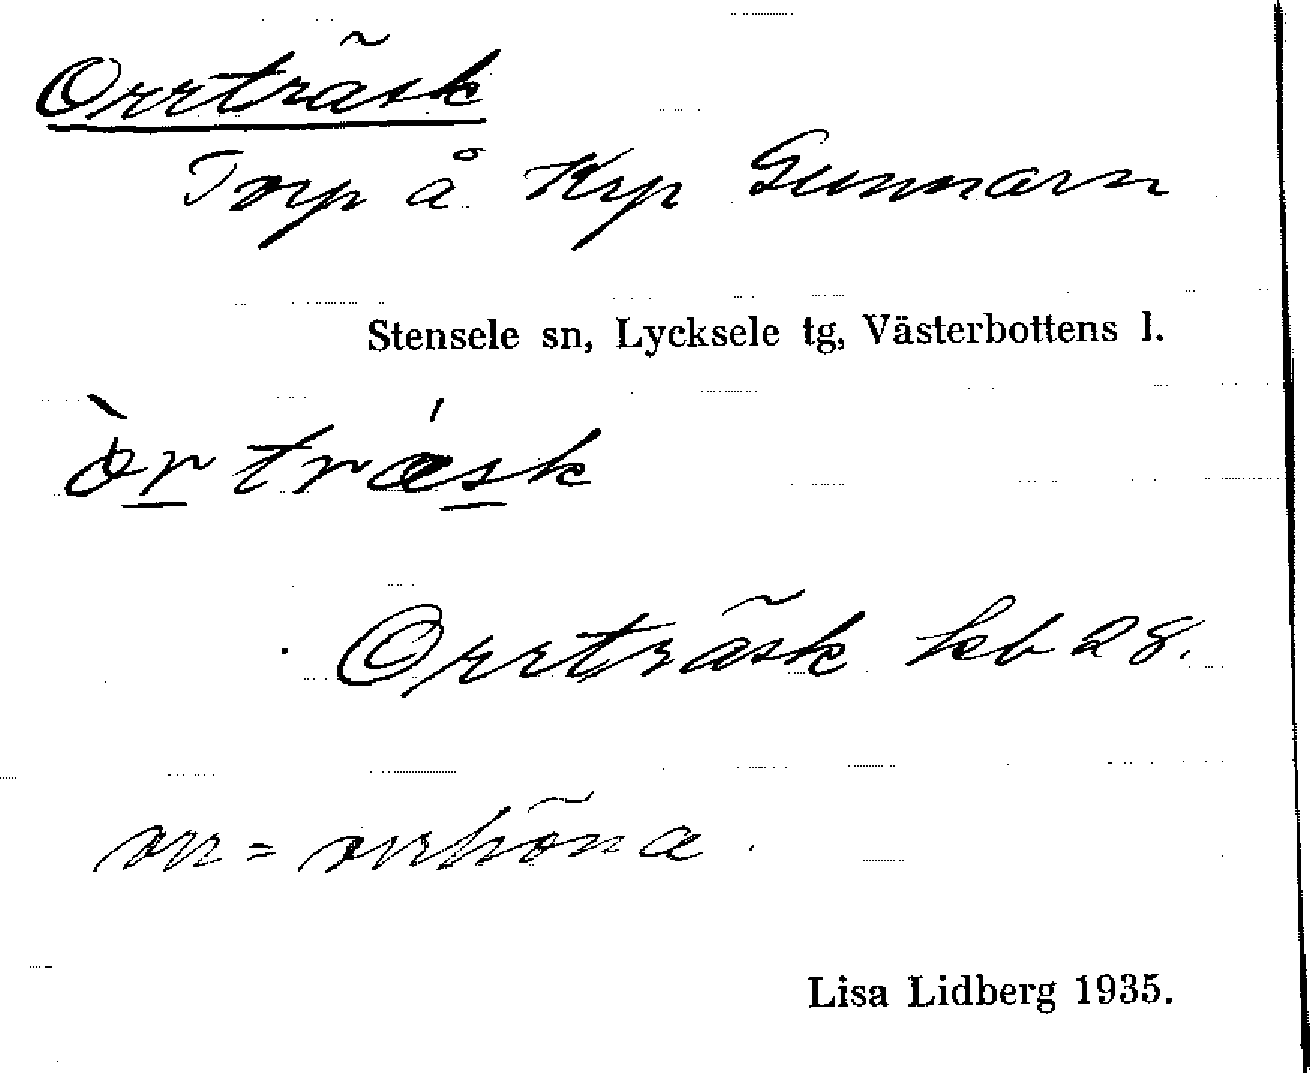 Orrträsk
Torp å Krp Gunnarn
Stensele sn, Lycksele tg, Västerbottens l.
òr trǽsk
Orrträsk kb 28.
orr = orrhöna.
Lisa Lidberg 1935.